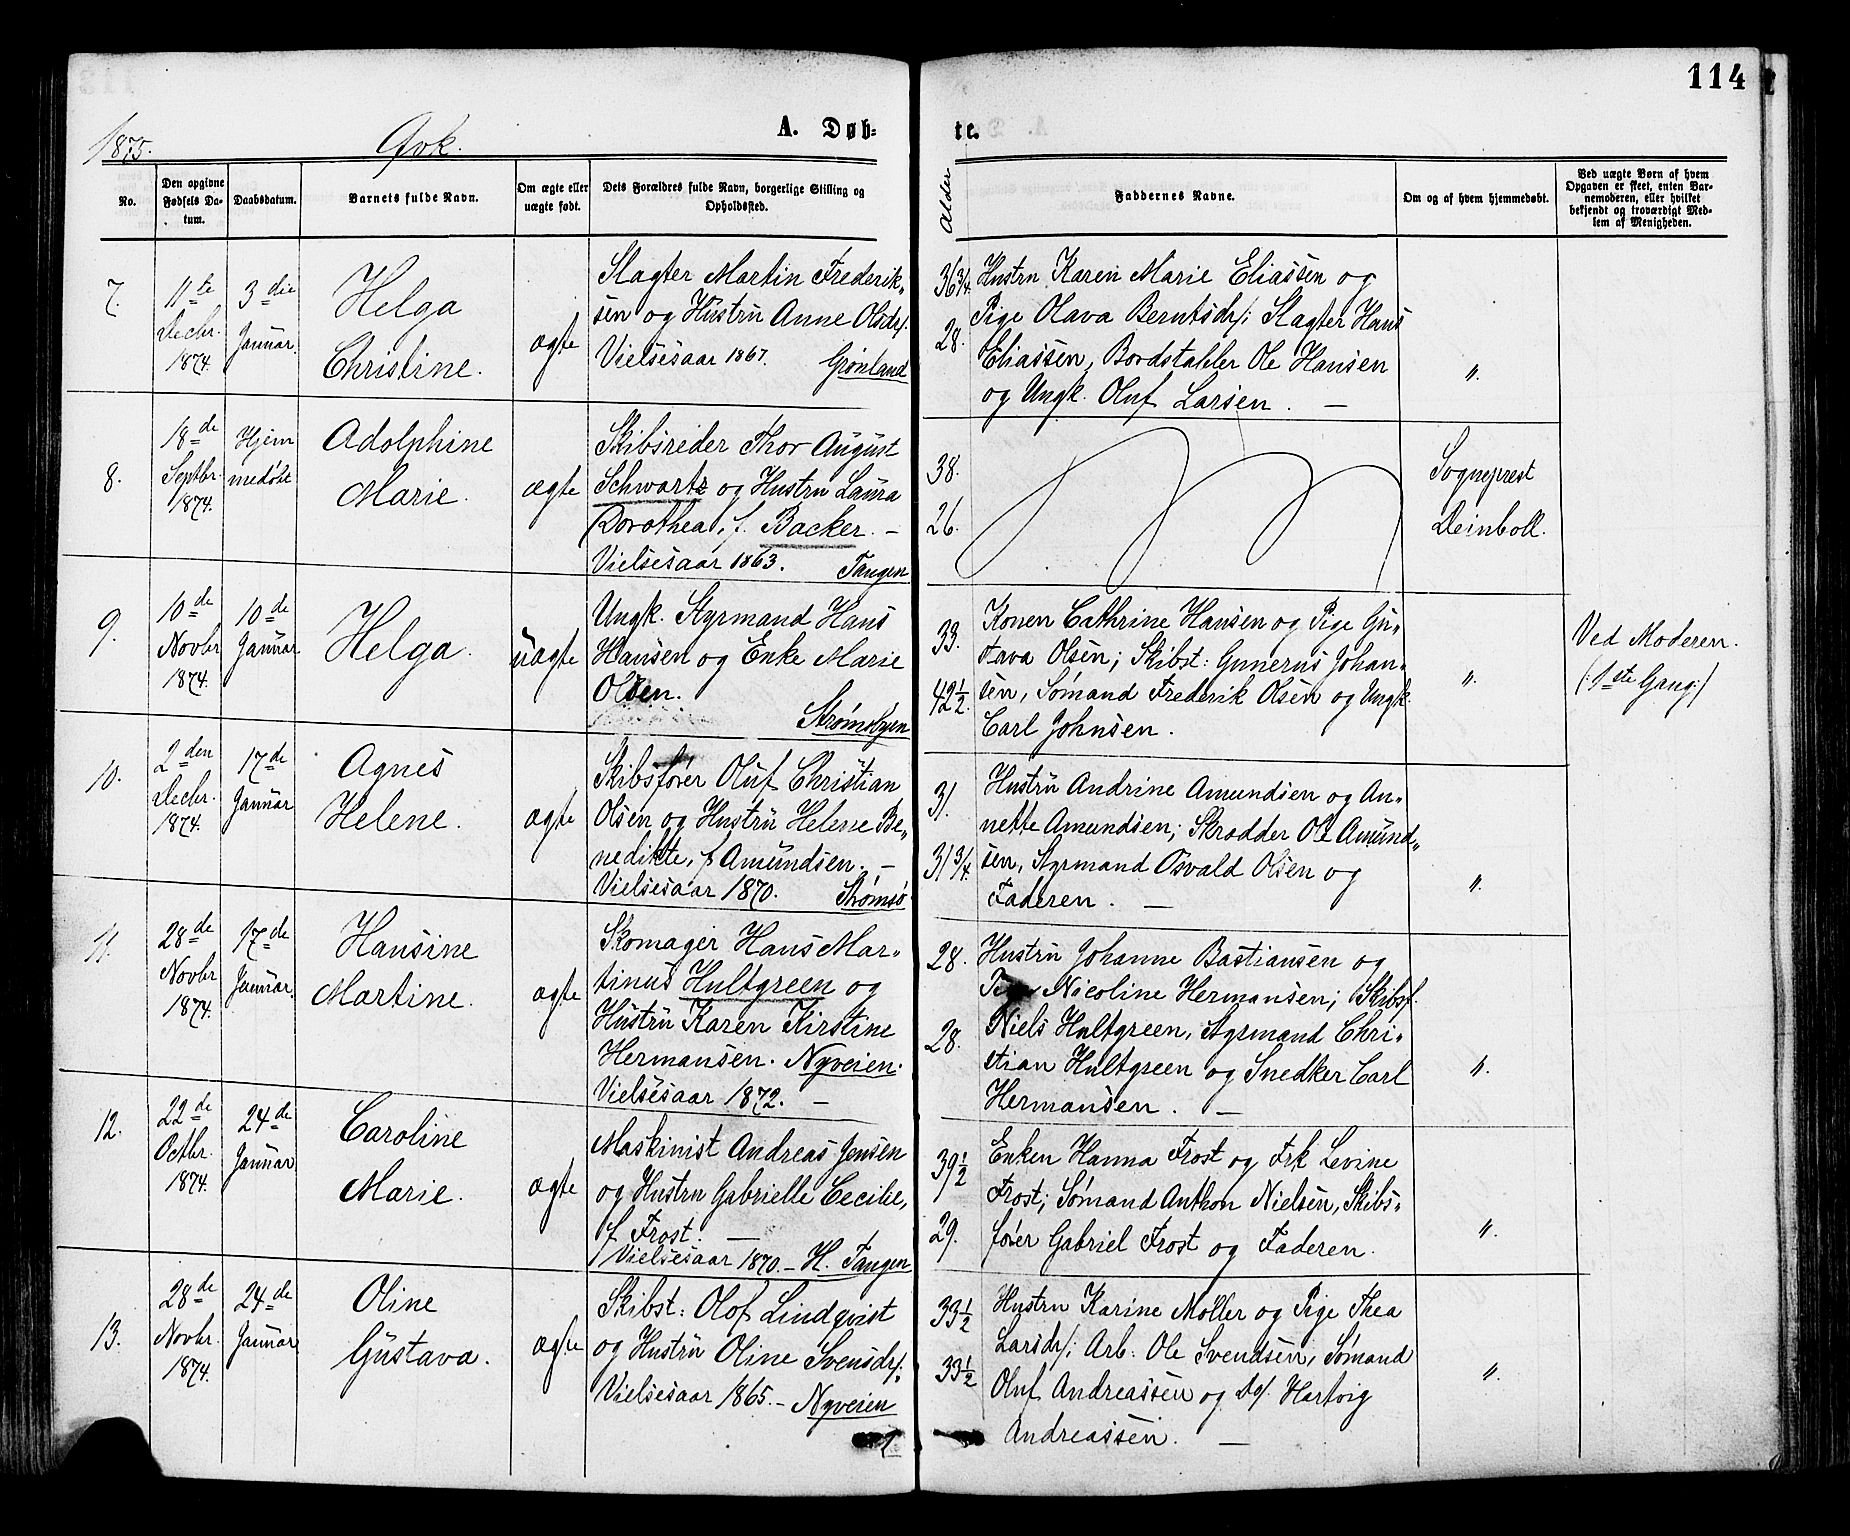 114
1875. Qvk. A. Døb- te.
No.
Den opgivne Fødsels Da- tum.
Daabsdatum.
Barnets fulde Navn.
Om ægte eller uægte født.
Dets Forældres fulde Navn, borgerlige Stilling og Opholdssted.
Alder
Faddernes Navne.
Om og af hvem hjemmedøbt.
Ved uægte Børn af hvem Opgaven er skeet, enten Bar- nemoderen, eller hvilket bekjendt og troværdigt Med- lem af Menigheden.
7.
11te Decbr. 1874.
3die Januar.
Helga
Christine.
ægte
Slagter Martin Frederik-
sen og Hustru Anne Olsdr.
Vielsesaar 1867. Grønland
36 3/4
28.
Hustru Karen Marie Eliassen og
Pige Olava Berntsdr; Slagter Hans
Eliassen, Bordstabler Ole Hansen
og Ungk. Oluf Larsen. —
"
8.
18de Septbr. 1874.
Hjem medøbt
Adolphine
Marie.
ægte
Skibsreder Thor August
Schwartz og Hustru Laura
Dorothea, f. Backer. —
Vielsesaar 1863. Tangen
38.
26.
Sogneprest
Deinboll.
9.
10de Novbr 1874.
10de Januar
Helga.
uægte
Ungk. Styrmand Hans
Hansen og Enke Marie
Olsen.
Strømsbyen
33.
42 1/2.
Konen Cathrine Hansen og Pige Gu-
stava Olsen; Skibst: Gunerus Johan-
sen, Sømand Frederik Olsen og Ungk.
Carl Johnsen.
"
Ved Moderen.
(:1ste Gang:)
10.
2den Decbr. 1874.
17de Januar
Agnes
Helene.
ægte
Skibsfører Oluf Christian
Olsen og Hustru Helene Be-
nedikte, f Amundsen. —
Vielsesaar 1870. Strømsø
31.
31 3/4.
Hustru Andrine Amundsen og An-
nette Amundsen; Skrædder Ole Amund-
sen, Styrmand Osvald Olsen og
Faderen. —
"
11.
28de Novbr 1874.
17de Januar.
Hansine
Martine.
ægte
Skomager Hans Mar-
tinus Hultgreen og
Hustru Karen Kirstine
Hermansen. Nyveien.
Vielsesaar 1872. —
28.
28.
Hustru Johanne Bastiansen og
Pige Nicoline Hermansen; Skibsf.
Niels Hultgreen, Styrmand Chri-
stian Hultgreen og Snedker Carl
Hermansen. —
"
12.
22de Octbr. 1874.
24de Januar
Caroline
Marie.
ægte
Maskinist Andreas Jensen
og Hustru Gabrielle Cecilie,
f Frost. —
Vielsesaar 1870. — H. Tangen
39 1/2
29.
Enken Hanna Frost og Frk Levine
Frost; Sømand Anthon Nielsen, Skibs-
fører Gabriel Frost og Faderen.
"
13.
28de Novbr. 1874.
24de Januar
Oline
Gustava.
ægte
Skibst: Olof Lindqvist
og Hustru Oline Svensdr.
Vielsesaar 1865. — Nyveien
33 1/2
33 1/2
Hustru Karine Møller og Pige Thea
Larsdr; Arb: Ole Svendsen, Sømand
Oluf Andreassen og do. Hartvig
Andreassen. —
"